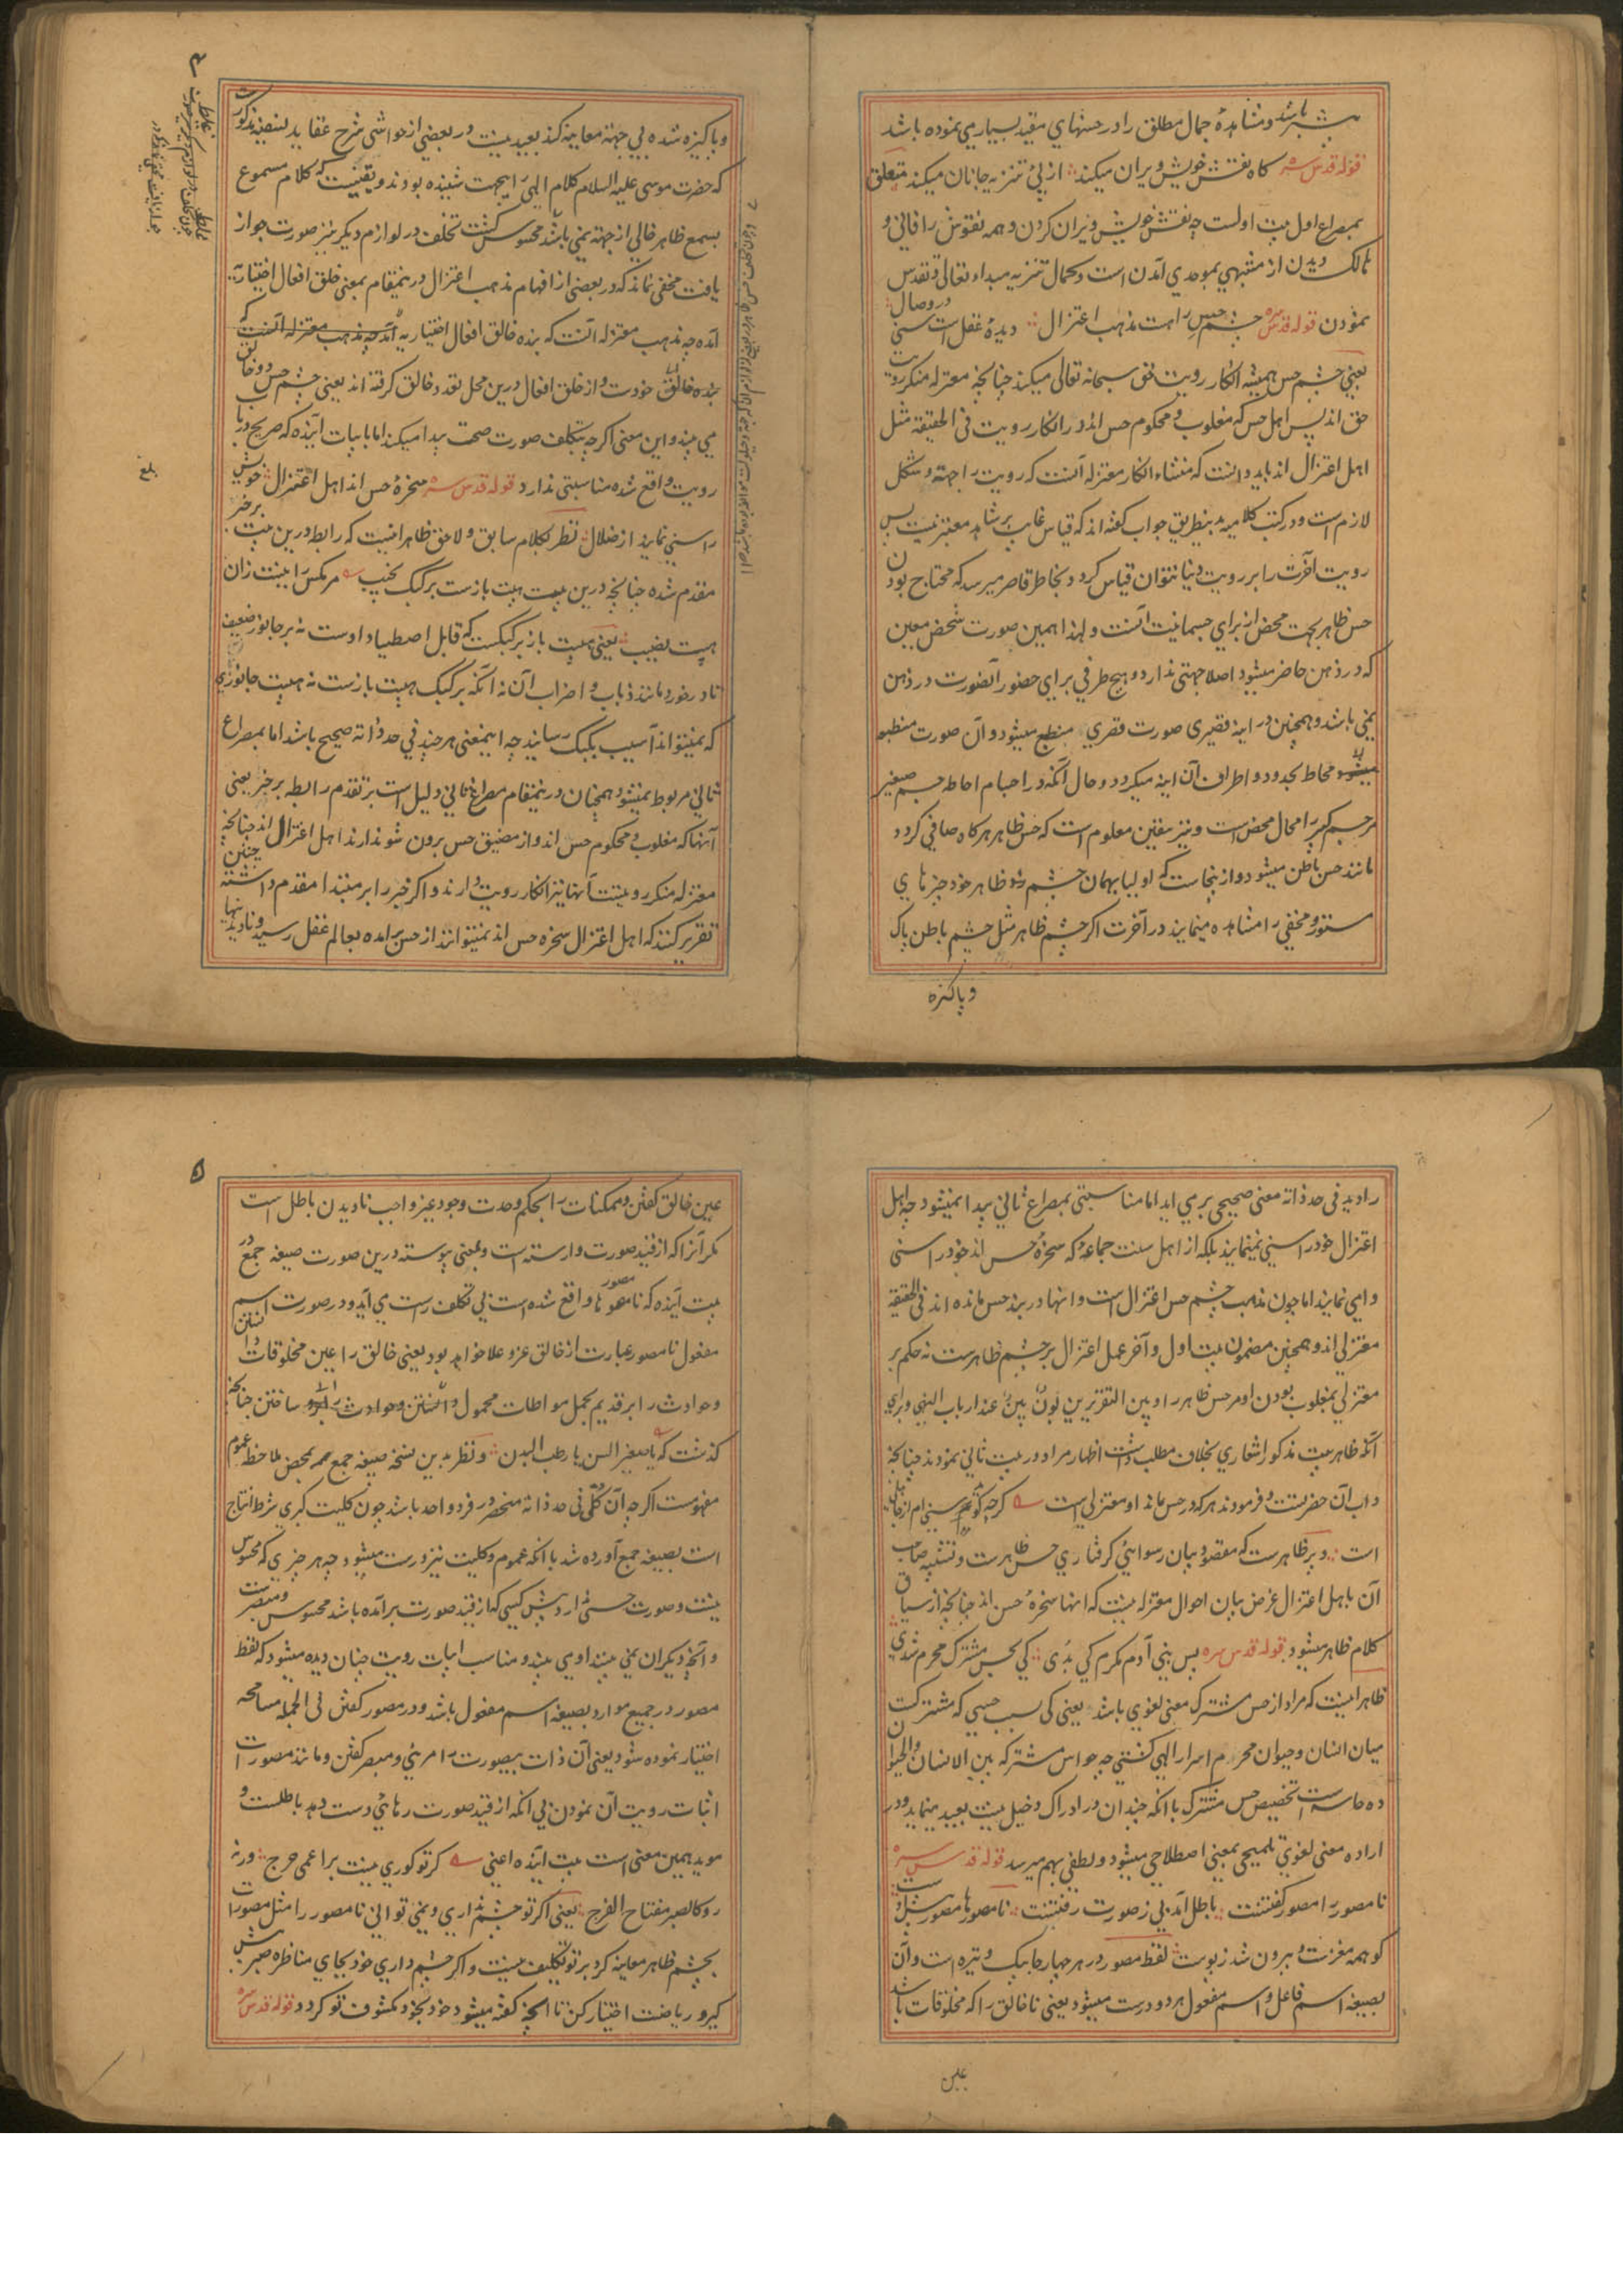 بیشتر باشد و مشاهدهٔ جمال مطلق را در حسنهای مقید بسیار می نموده باشد
قوله قدس سره گاه نقش خویش ویران میکند از پی تنزیه جانان میکند متعلق
بمصراع اول بیت اولست چه نقش خویش ویران کردن و همه نقوش را فانی و
هالک دیدن از مشبهی بموحدی آمدن است و کمال تنزیه مبداء تعالی و تقدس
نمودن قوله قدس سره چشم حس را هست مذهب اعتزال دیدهٔ عقل است سنی در وصال
یعنی چشم حس همیشه انکار رویت حق سبحانه تعالی میکند چنانچه معتزله منکر رویت
حق اند پس اهل حس که مغلوب و محکوم حس اند در انکار رویت فی الحقیقة مثل
اهل اعتزال اند باید دانست که منشاء انکار معتزله آنست که رویت را جهة و شکل
لازم است و در کتب کلامیه بدینطریق جواب گفته اند که قیاس غایب بر شاهد معتبر نیست پس
رویت آخرت را بر رویت دنیا نتوان قیاس کرد و بخاطر قاصر میرسد که محتاج بودن
حس ظاهر بجهت محض از برای جسمانیت آنست و لهذا همین صورت شخص معین
که در ذهن حاضر میشود اصلا جهتی ندارد و هیچ طرفی برای حضور آنصورت در ذهن
نمی باشد و همچنین در اینه قصیری صورت قصری منطبع میشود و آن صورت منطبعه
محاط بحدود و اطراف آن اینه میگردد و حال آنکه در اجسام احاطه جسم صغیر
مر جسم کبیر را محال محض است و نیز بیقین معلوم است که حس ظاهر هر گاه صافی گردد
مانند حس باطن میشود و از ینجاست که اولیا بهمان چشم ظاهر خود چیزهای
مستور و مخفی را مشاهده مینمایند در آخرت اگر چشم ظاهر مثل چشم باطن پاک
و پاکیزه
و پاکیزه شده بی جهة معاینه کند بعید نیست و در بعضی از حواشی شرح عقاید نسفیه مذکور است
که حضرت موسی علیه السلام کلام الهی را بیجهت شنیده بودند و یقینست که کلام مسموع
بسمع ظاهر خالی از جهة نمی باشد محسوس گشت تخلف در لوازم دیگر نیز صورت جواز
یافت مخفی نماند که در بعضی از افهام مذهب اعتزال درینمقام بمعنی خلق افعال اختیاریه
آمده چه مذهب معتزله آنست که بنده خالق افعال اختیاریه آمد چه مذهب معتزله آنست که
بنده خالق خودست و از خلق افعال درین محل تعدد خالق گرفته اند یعنی چشم حس دو خالق
می بیند و این معنی اگر چه بتکلف صورت صحت پیدا میکند اما با بیات آینده که صریح در باب
رویت واقع شده مناسبتی ندارد قوله قدس سره سخرهٔ حس اند اهل اعتزال خویش
را سنی نمایند از ضلال نظر بکلام سابق و لاحق ظاهر انست که رابط درین بیت بر خبر
مقدم شده چنانچه درین بیت هیبت بازست بر کبک نجیب مر مگس را نیست زان
هیبت نصیب یعنی هیبت باز بر کبکست که قابل اصطیاد اوست نه بر جانور ضعیف
نادر خور مانند ذباب و اضراب آن نه آنکه بر کبک هیبت بازست نه هیبت جانوری
که نمیتواند آسیب بکبک رسانید چه اینمعنی هر چند فی حد ذاته صحیح باشد اما بمصراع
ثانی مربوط نمیشود همچنان درینمقام مصراع ثانی دلیل است بر تقدم رابطه بر خبر یعنی
آنها که مغلوب و محکوم حس اند و از مضیق حس برون شو ندارند اهل اعتزال اند چنانچه
معتزله منکر رویتست آنها نیز انکار رویت دارند و اگر خبر را بر مبتدا مقدم داشته چنین
تقریر کنند که اهل اعتزال سخره حس اند نمیتوانند از حس برامده بعالم عقل رسید و نادیدنیها
را دید فی حد ذاته معنی صحیحی بر می اید اما مناسبتی بمصراع ثانی پیدا نمیشود چه اهل
اعتزال خود را سنی نمینمایند بلکه از اهل سنت جماعهٔ که سخرهٔ حس اند خود را سنی
وامی نمایند اما چون مذهب چشم حس اعتزال است و انها در بند حس مانده اند فی الحقیقة
معتزلی اند و همچنین مضمون بیت اول و آخر عمل اعتزال بر چشم ظاهرست نه حکم بر
معتزلی بمغلوب بودن او مر حس ظاهر را و بین التقریرین بون بین عند ارباب النهی و برای
آنکه ظاهر بیت مذکور اشعاری بخلاف مطلب داشت اظهار مراد در بیت ثانی نمودند چنانچه
داب آن حضرتست و فرمودند هر که در حس ماند او معتزلی است گر چه گوید سنیم از جاهلی
است و پر ظاهرست که مقصود بیان رسوائی گرفتاری حس ظاهرست و تشبیه صاحب
آن با هل اعتزال غرض بیان احوال معتزله نیست که انها سخرهٔ حس اند چنانچه از سیاق
کلام ظاهر میشود قوله قدس سره پس بنی آدم مکرم کی بدی کی بحس مشترک محرم شدی
ظاهر انیست که مراد از حس مشترک معنی لغوی باشد یعنی کی بسبب حسی که مشترکست
میان انسان و حیوان محرم اسرار الهی گشتی چه حواس مشترکه بین الانسان و الحیوان
ده حاسه است تخصیص حس مشترک با آنکه چندان در ادراک دخیل نیست بعید مینماید و در
اراده معنی لغوی تلمیحی بمعنی اصطلاحی میشود و لطفی بهم میرسد قوله قدس سره
نا مصور را مصور گفتنت باطل آمد بی ز صورت رفتنت نا مصور ها مصور پیش اوست
کو همه مغزست و بیرون شد ز پوست لفظ مصور در هر چهار جا بیک وتیره است و آن
بصیغه اسم فاعل و اسم مفعول هر دو درست میشود یعنی نا خالق را که مخلوقات باشد
عین
۵
عین خالق گفتن و ممکنات را بحکم وحدت وجود غیر واجب نا دیدن باطل است
مگر آنرا که از قید صورت وارسته است و بمعنی پیوسته درین صورت صیغه جمع در
بیت آینده که نا مصور ها واقع شده است بی تکلف راست می آید و در صورت اسم
مفعول نا مصور عبارت از خالق عز و علا خواهد بود یعنی خالق را عین مخلوقات دانستن
و حوادث را بر قدیم بحمل مواطات محمول دانستن و حوادث را ساختن چنانچه
گذشت که یا صغیر السن یا رطب البدن و نظر بدین نسخه صیغه جمع بمحض ملاحظه عموم
مفهومست اگر چه آن کلی فی حد ذاته منحصر در فرد واحد باشد چون کلیت کبری شرط انتاج
است بصیغه جمع آورده شد با آنکه عموم و کلیت نیز درست میشود چه هر چیزی که محسوس
نیست و صورت حسی ندارد پیش کسی که از قید صورت برآمده باشد محسوس و متبصرست
و آنچه دیگران نمی بینند او می بیند و مناسب ابیات رویت چنان دیده میشود که لفظ
مصور در جمیع موارد بصیغه اسم مفعول باشد و در مصور گفتن فی الجمله مسامحه
اختیار نموده شود یعنی آن ذات بیصورت را مرئی و مبصر گفتن و مانند مصورات
اثبات رویت آن نمودن بی آنکه از قید صورت رهائی دست دهد باطلست و
موید همین معنی است بیت آینده اعنی گر تو کوری نیست بر اعمی حرج ورنه
رو کالصبر مفتاح الفرج یعنی اگر تو چشم نداری و نمی توانی نا مصور را مثل مصورات
بچشم ظاهر معاینه کرد بر تو تکلیف نیست و اگر چشم داری خود بجای مناظره صبر پیش
گیر و ریاضت اختیار کن تا آنچه گفته میشود خود بخود مکشوف تو گردد قوله قدس سره